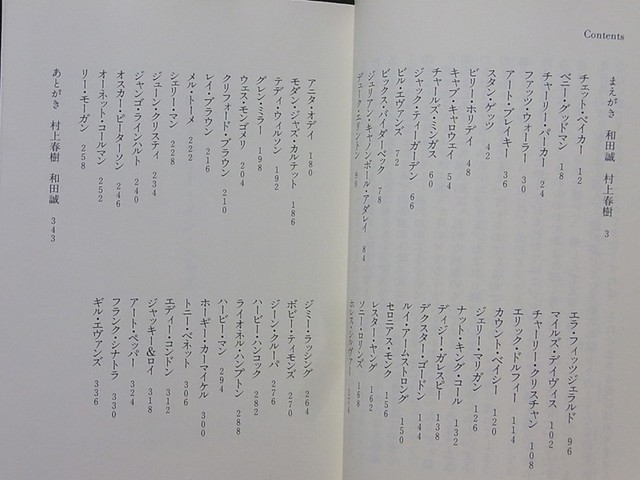 Contents
まえがき 和田誠 村上春樹 3
チェット・ベイカー 12
ベニー・グッドマン 18
チャーリー・パーカー 24
ファッツ・ウォーラー 30
アート・ブレイキー 36
スタン・ゲッツ 42
ビリー・ホリデイ 48
キャブ・キャロウェイ 54
チャールズ・ミンガス 60
ジャック・ティーガーデン 66
ビル・エヴァンズ 72
ビックス・バイダーベック 78
ジュリアン・キャノンボール・アダレイ 84
デューク・エリントン
エラ・フィッツジェラルド 96
マイルズ・デイヴィス 102
チャーリー・クリスチャン 108
エリック・ドルフィー 114
カウント・ベイシー 120
ジェリー・マリガン 126
ナット・キング・コール 132
ディジー・ガレスピー 138
デクスター・ゴードン 144
ルイ・アームストロング 150
セロニアス・モンク 156
レスター・ヤング 162
ソニー・ロリンズ 168
ホレス・シルヴァー
アニタ・オデイ 180
モダン・ジャズ・カルテット 186
テディ・ウィルソン 192
グレン・ミラー 198
ウェス・モンゴメリ 204
クリフォード・ブラウン 210
レイ・ブラウン 216
メル・トーメ 222
シェリー・マン 228
ジューン・クリスティ 234
ジャンゴ・ラインハルト 240
オスカー・ピーターソン 246
オーネット・コールマン 252
リー・モーガン 258
ジミー・ラッシング 264
ボビー・ティモンズ 270
ジーン・クルーパ 276
ハービー・ハンコック 282
ライオネル・ハンプトン 288
ハービー・マン 294
ホーギー・カーマイケル 300
トニー・ベネット 306
エディー・コンドン 312
ジャッキー&ロイ 318
アート・ペッパー 324
フランク・シナトラ 330
ギル・エヴァンズ 336
あとがき 村上春樹 和田誠 343